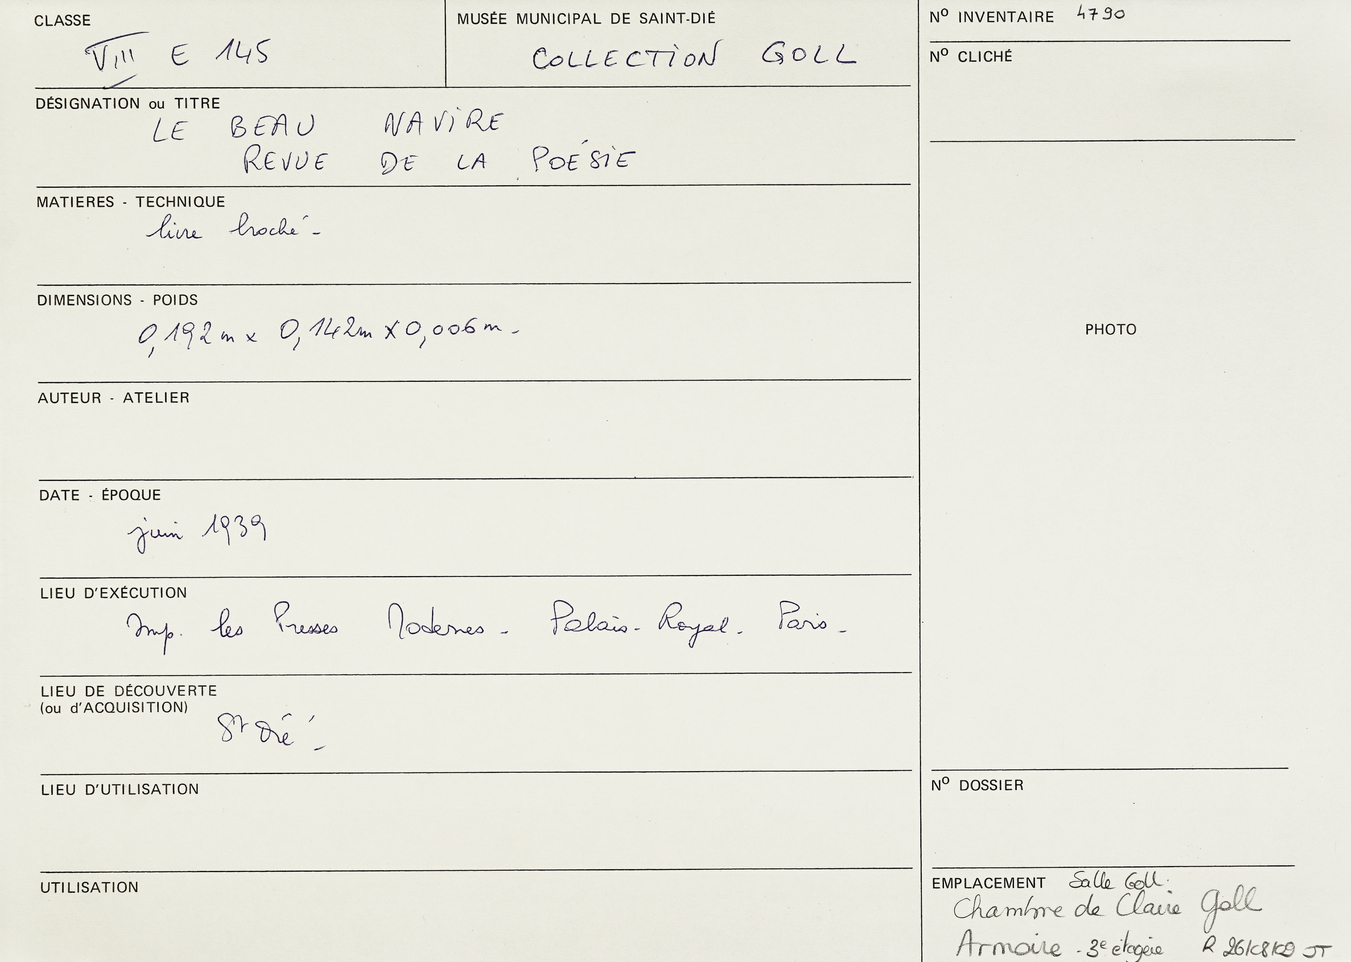 CLASSE
VIII E 145
MUSÉE MUNICIPAL DE SAINT-DIÉ
COLLECTION GOLL
N° INVENTAIRE 4790
N° CLICHÉ
DÉSIGNATION ou TITRE
LE BEAU NAVIRE
REVUE DE LA POÉSIE
MATIERES - TECHNIQUE
livre broché -
DIMENSIONS - POIDS
0,192m x 0,142m X 0,006m -
PHOTO
AUTEUR - ATELIER
DATE - ÉPOQUE
juin 1939
LIEU D'EXÉCUTION
Imp. les Presses Modernes - Palais-Royal. Paris -
LIEU DE DÉCOUVERTE
(ou d'ACQUISITION)
St Dié -
LIEU D'UTILISATION
N° DOSSIER
UTILISATION
EMPLACEMENT Salle Goll.
Chambre de Claire Goll
Armoire - 3e étagère R JT